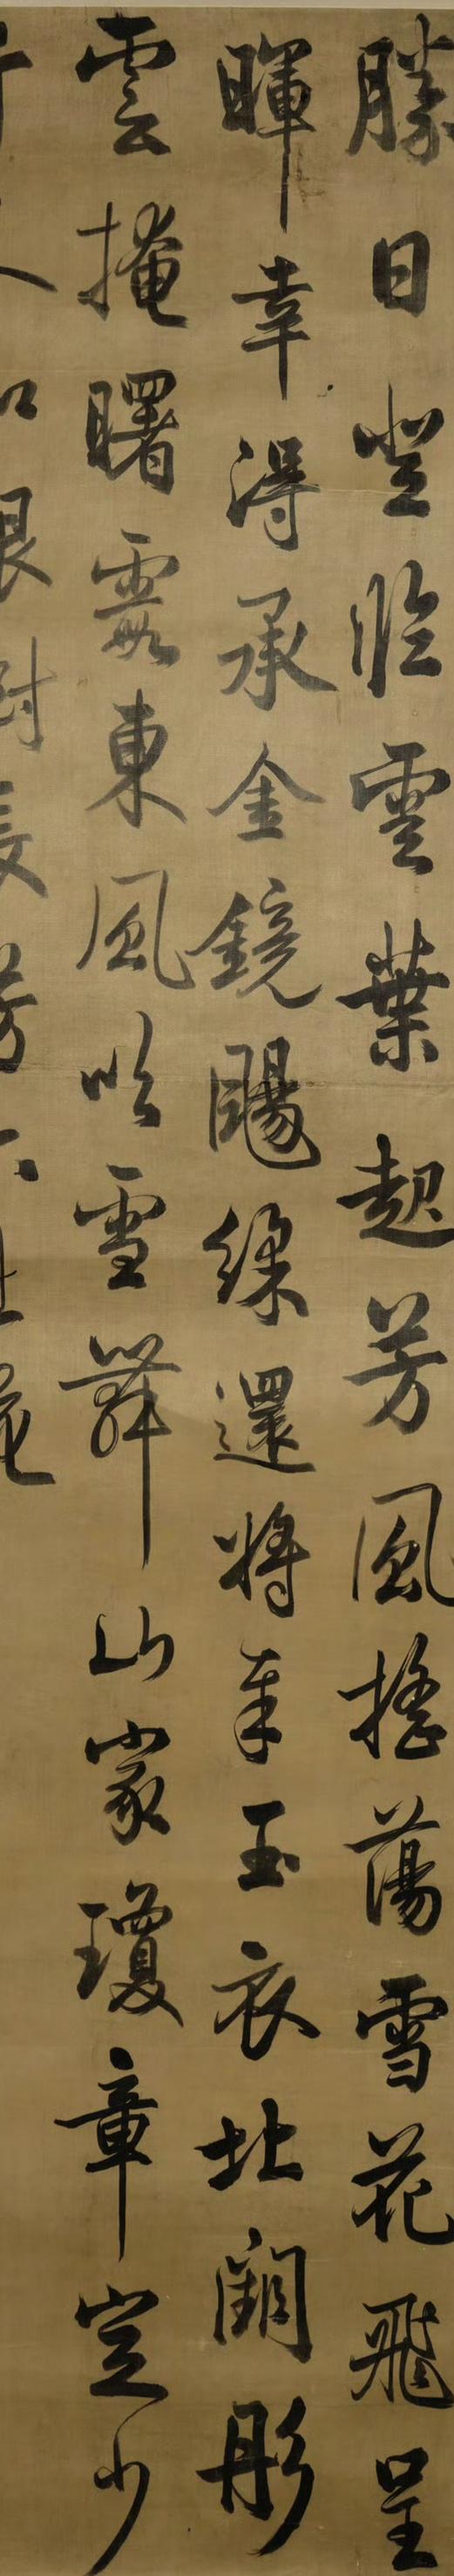 勝日登臨雲葉起芳風搖蕩雪花飛呈
暉幸得承金鏡颺綵還將奉玉衣北闕彤
雲掩曙霞東風吹雪舞山家瓊章定少